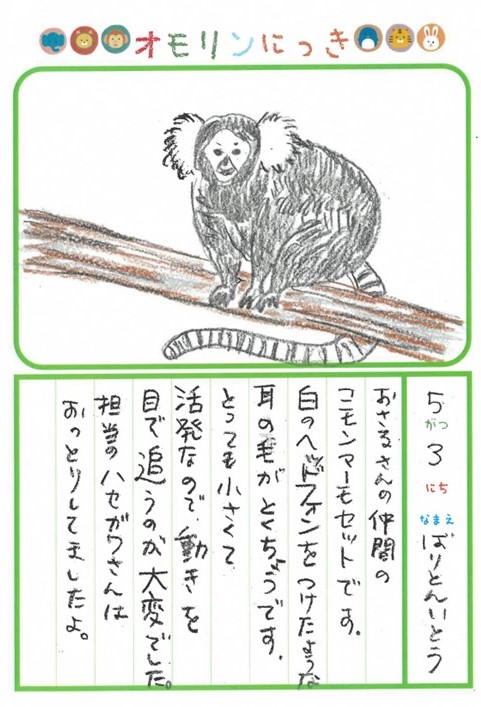 オモリンにっき
5がつ3にち
なまえ ばりとんいとう
おさるさんの仲間の
コモンマーモセットです。
白のヘッドフォンをつけたような
耳の毛がとくちょうです。
とっても小さくて
活発なので、動きを
目で追うのが大変でした。
担当のハセガワさんは
おっとりしてましたよ。